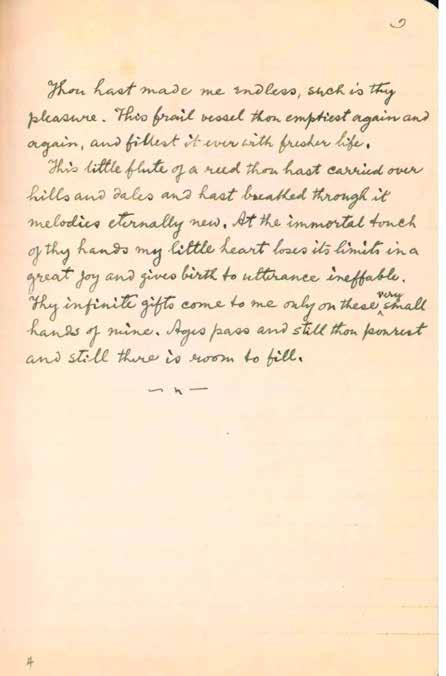 Thou hast made me endless, such is thy
pleasure. This frail vessel thou emptiest again and
again, and fillest it ever with fresher life.
This little flute of a reed thou hast carried over
hills and dales and hast breathed through it
melodies eternally new. At the immortal touch
of thy hands my little heart loses its limits in a
great joy and gives birth to utterance ineffable.
Thy infinite gifts come to me only on these very small
hands of mine. Ages pass and still thou pourest
and still there is room to fill.
4